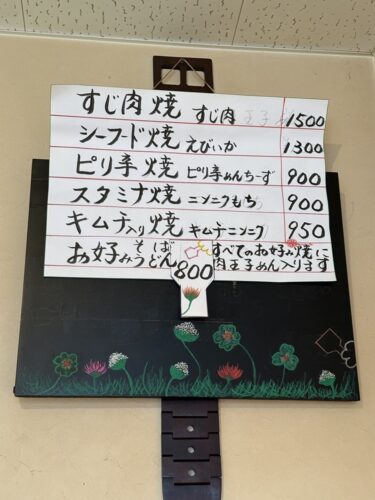 すじ肉焼 すじ肉 1500
シーフード焼 えびいか 1300
ピリ辛焼 ピリ辛めんちーず 900
スタミナ焼 ニンニクもち 900
キムチ入り焼 キムチニンニク 950
お好みそばうどん 800 すべてのお好み焼に
肉玉子めん入ります